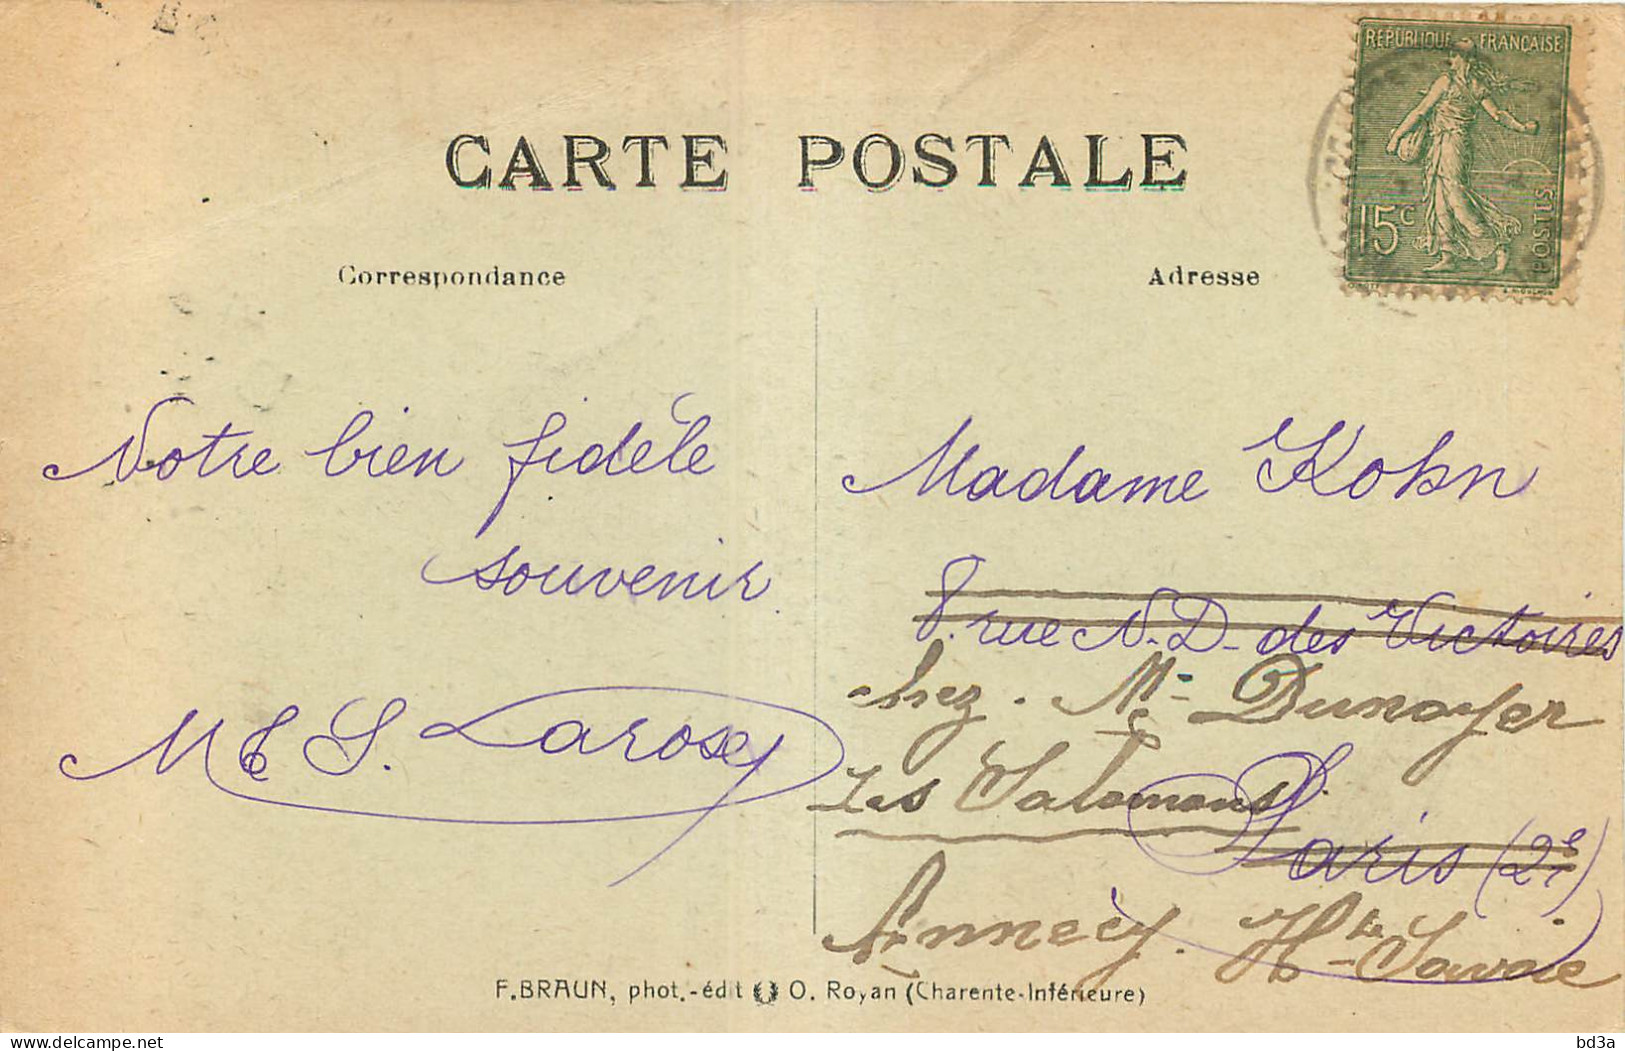 CARTE POSTALE
RÉPUBLIQUE FRANÇAISE
15c
POSTES
Correspondance
Adresse
Notre bien fidèle
souvenir.
M S. Larosey
Madame Kohn
8. rue N.D. des Victoires
chez. Me Dunoyer
Les Salomons
Paris (2e)
Annecy. Hte-Savoie
F. BRAUN, phot.-édit O. Royan (Charente-Inférieure)
delcampe.net
bd3a